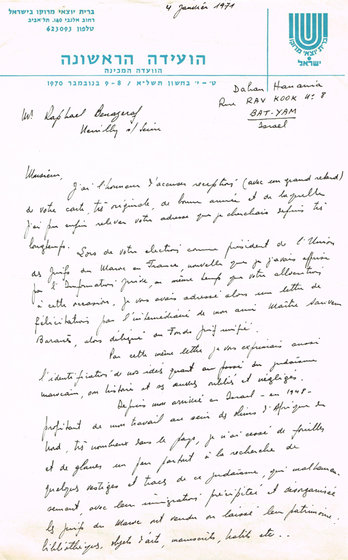 4 Janvier 1971
ברית יוצאי מרוקו בישראל
רחוב אלנבי 160, תל־אביב
טלפון 623093
ברית יוצאי מרוקו
ישראל
הועידה הראשונה
הוועדה המכינה
ט׳ – י׳ בחשון תשל״א / 8–9 בנובמבר 1970
Dahan Hanania
Rue RAV KOOK No 8
BAT-YAM
Israel
Mr Raphael Benazeraf
Neuilly s/ Seine
Monsieur,
J'ai l'honneur d'accuser réception (avec un grand retard)
de votre carte, très originale, de bonne année et de laquelle
j'ai pu enfin relever votre adresse que je cherchais depuis très
longtemps.
Lors de votre élection comme président de l'Union
des Juifs du Maroc en France, nouvelle que j'avais apprise
par l'Information juive, en même temps que votre allocution
à cette occasion, je vous avais adressé alors une lettre de
félicitations par l'intermédiaire de mon ami Maître Sauveur
alors délégué au Fonds juif unifié.
Par cette même lettre, je vous exprimais aussi
l'identification de mes idées quant au passé du judaïsme
marocain, son histoire et ses oubliés et négligés.
Depuis mon arrivée en Israël – en 1948 –
profitant de mon travail au sein de d'Afrique du
Nord, très nombreux dans le pays, je n'ai cessé de fouiller
et de glaner un peu partout à la recherche de
quelques vestiges et traces de ce judaïsme, qui malheureu-
sement, avec leur immigration précipitée et désorganisée
les juifs du Maroc ont vendu ou laissé leur patrimoine:
bibliothèques, objets d'art, manuscrits, habits etc...